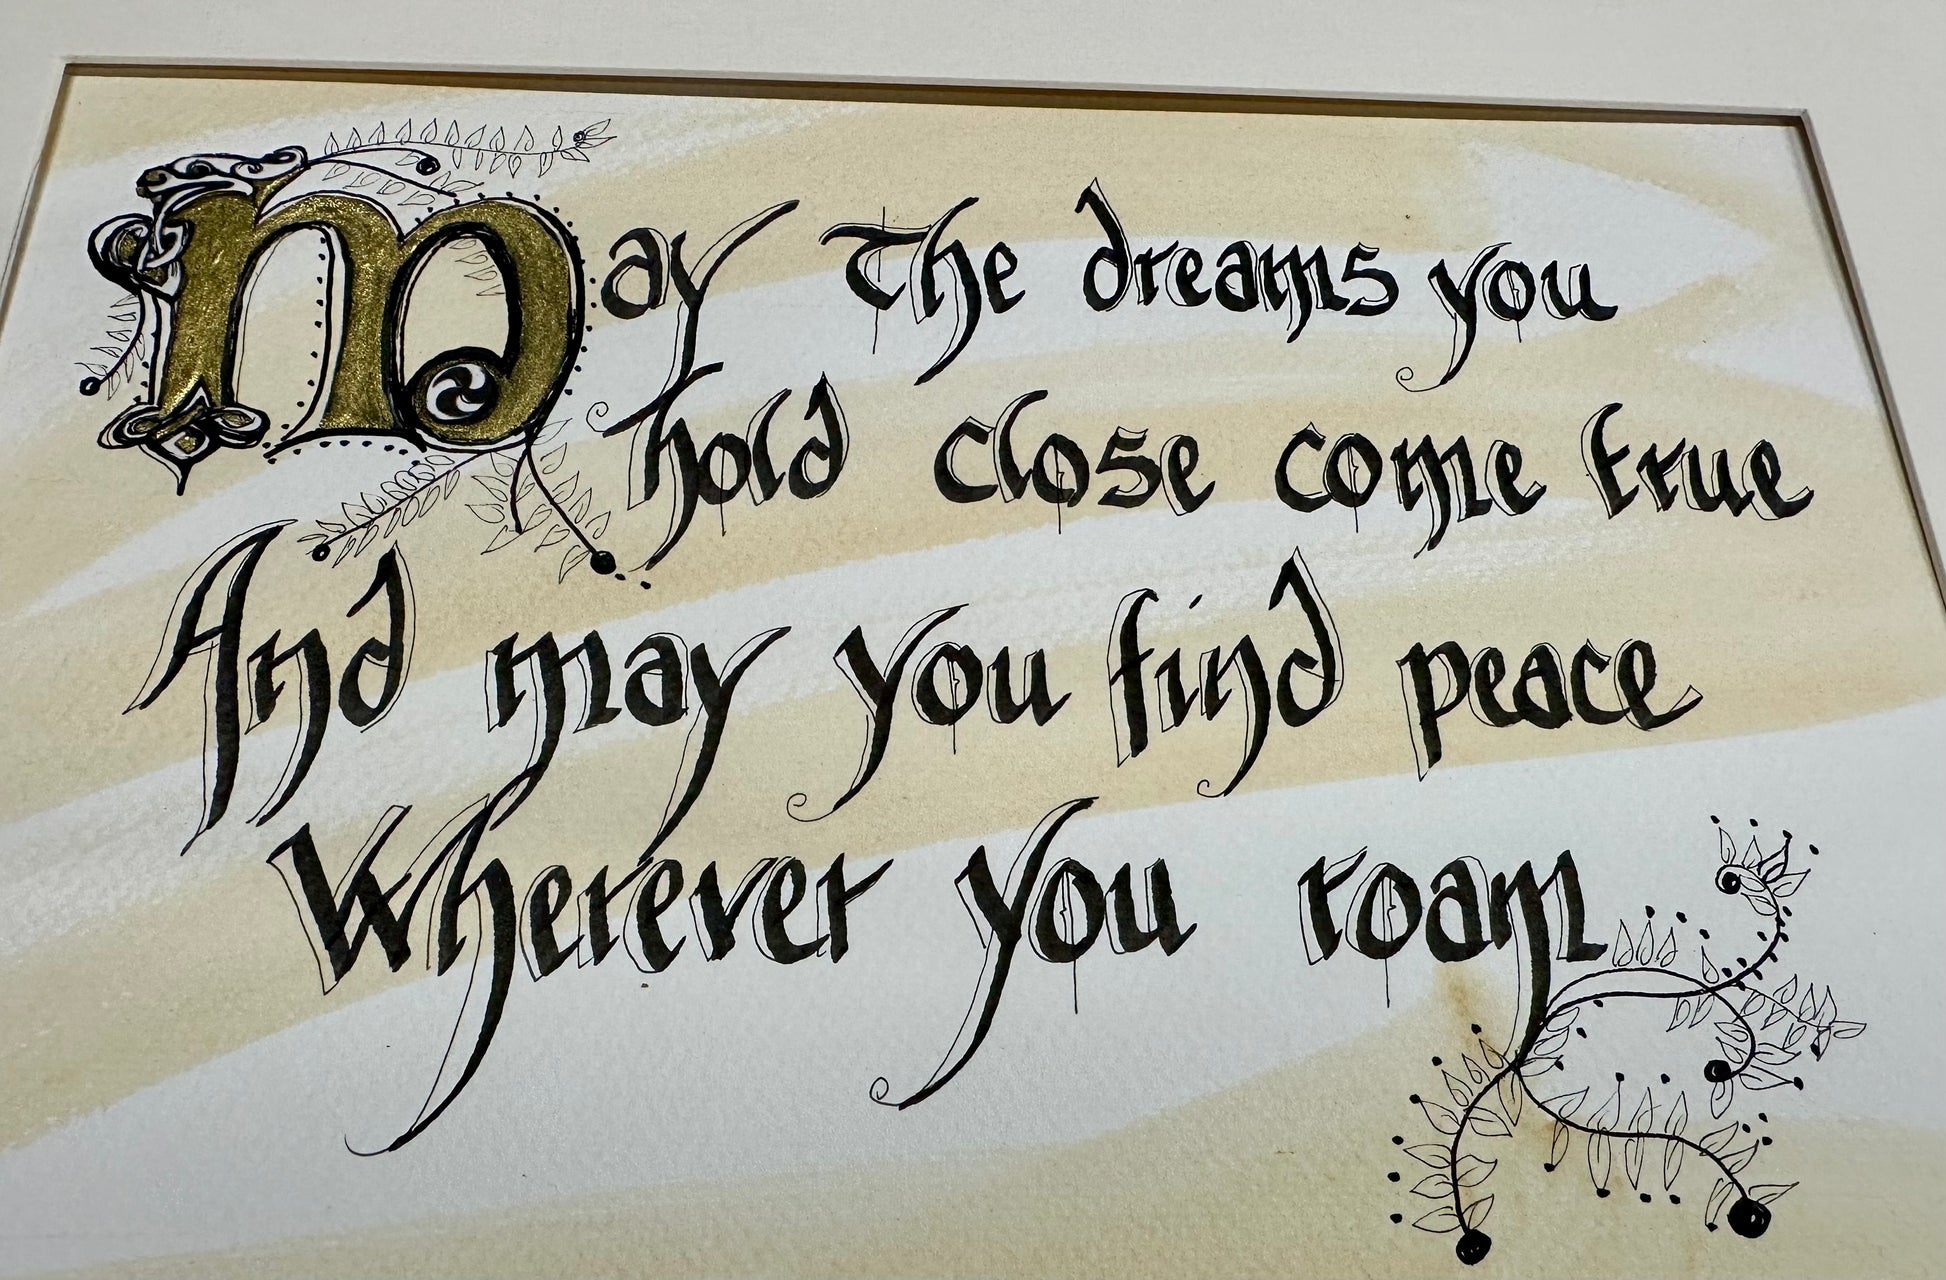 May The dreams you
hold close come true
And may you find peace
Wherever you roam